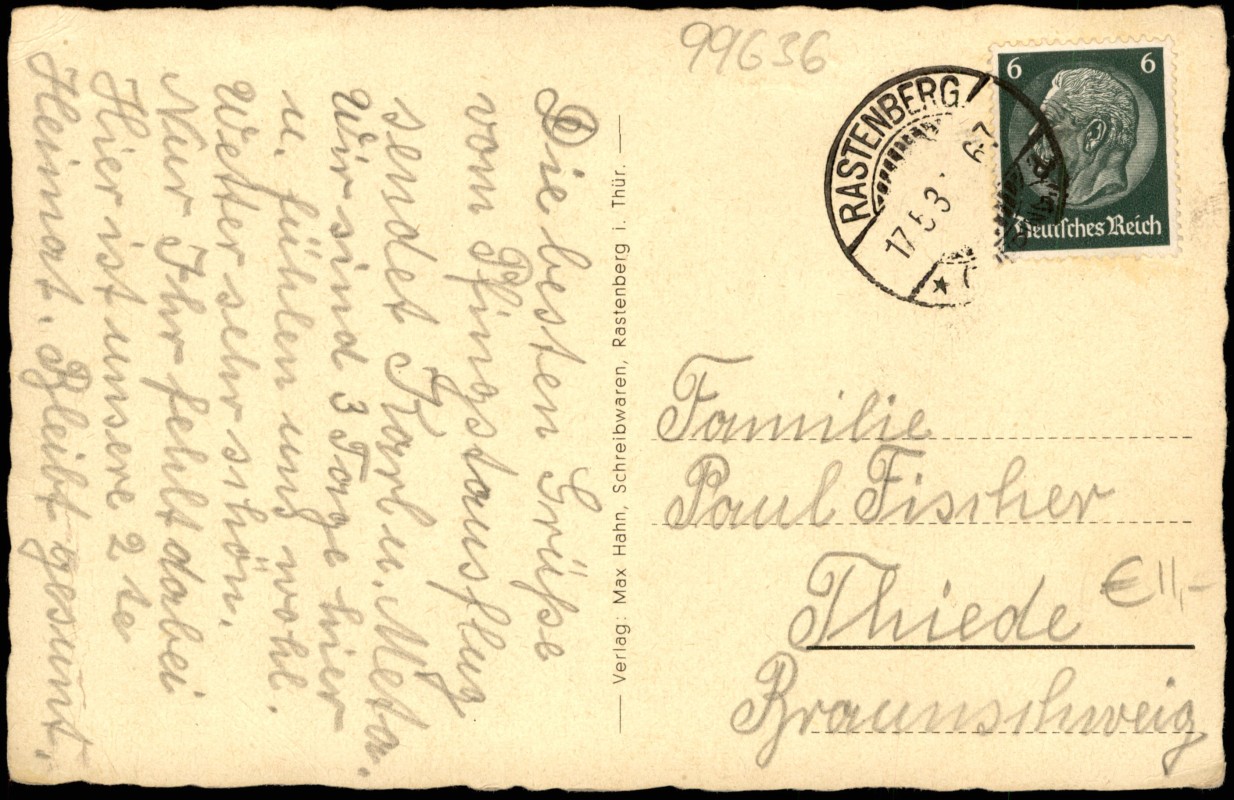 Die besten Grüße
vom Pfingstausflug
sendet Karl u. Meta.
Wir sind 3 Tage hier
u. fühlen uns wohl.
Wetter sehr schön.
Nur Ihr fehlt dabei
Hier ist unsere 2 te
Heimat. Bleibt gesunt.
Verlag: Max Hahn, Schreibwaren, Rastenberg i. Thür.
99636
RASTENBERG
17.5.3
6-7
6 6
Deutsches Reich
Familie
Paul Fischer
Thiede
€ 11,-
Braunschweig